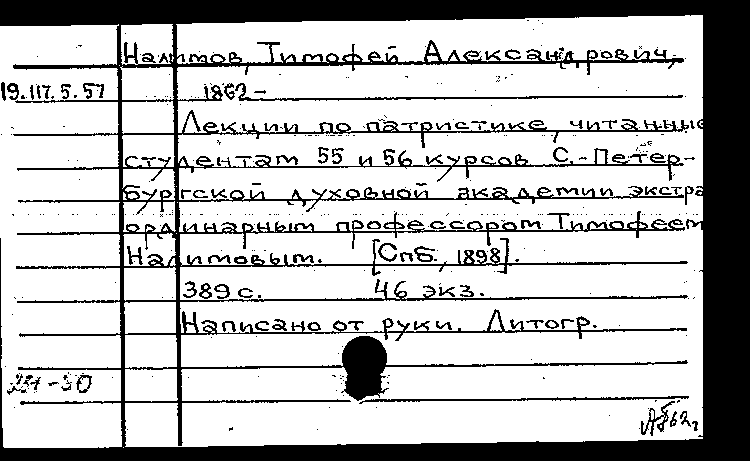 Налимов, Тимофей Александрович,
19.117.5.57 1862-
Лекции по патристике, читанные
студентам 55 и 56 курсов С.-Петер-
бургской духовной академии экстра
ординарным профессором Тимофеем
Налимовым. [Спб., 1898].
389 с. 46 экз.
Написано от руки. Литогр.